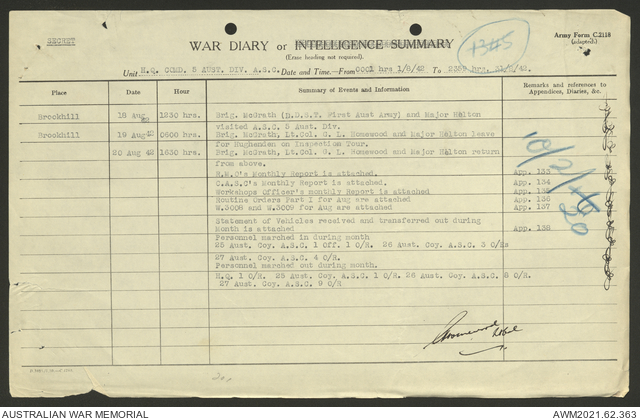 SECRET
WAR DIARY or INTELLIGENCE SUMMARY
(Erase heading not required).
1345
Army Form C.2118
(adapted).
Unit H.Q. COMD. 5 AUST. DIV. A.S.C. Date and Time—From 0001 hrs 1/8/42 To 2359 hrs. 31/8/42.
Place Date Hour Summary of Events and Information Remarks and references to Appendices, Diaries, &c.
Brookhill 18 Aug 42 1230 hrs. Brig. McGrath (D.D.S.T. First Aust Army) and Major Helton
visited A.S.C. 5 Aust. Div.
Brookhill 19 Aug 42 0600 hrs. Brig. McGrath, Lt.Col. G. L. Homewood and Major Helton leave
for Hughenden on Inspection Tour.
20 Aug 42 1630 hrs. Brig. McGrath, Lt.Col. G. L. Homewood and Major Helton return
from above.
C's Monthly Report is attached. App. 133
C.A.S.C's Monthly Report is attached. App. 134
Workshops Officer's monthly Report is attached App. 135
Routine Orders Part I for Aug are attached App. 136
W.3008 and W.3009 for Aug are attached App. 137
Statement of Vehicles received and transferred out during
Month is attached App. 138
Personnel marched in during month
25 Aust. Coy. A.S.C. 1 Off. 1 O/R. 26 Aust. Coy. A.S.C. 3 O/Rs
27 Aust. Coy. A.S.C. 4 O/R.
Personnel marched out during month.
H.q. 1 O/R. 25 Aust. Coy. A.S.C. 1 O/R. 26 Aust. Coy. A.S.C. 8 O/R.
27 Aust. Coy. A.S.C. 9 O/R
10/2/
20
Homewood
AUSTRALIAN WAR MEMORIAL
AWM2021.62.363